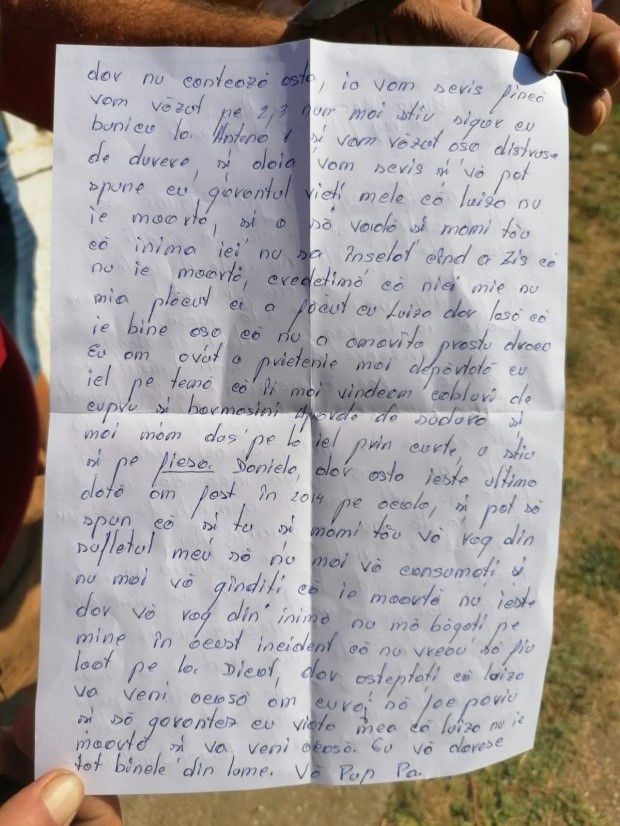 dor nu contează asta, io vam scris fincă
vam văzut pe 2,3 nu mai știu sigur cu
bunicu la Antena 1 și vam văzut așa distrusă
de durere, și doia vam scris și vă pot
spune cu garantul vieți mele că luiza nu
ie moartă, și o să vadă și mami tău
că inima iei nu sa înșelat când a zis că
nu ie moartă, credețimă că nici mie nu
mia plăcut ce a făcut cu Luiza dar lasă că
ie bine așa că nu a omorîto prostu dracu
Eu am avut o prietenie mai depărtată cu
iel pe temă că îi mai vindeam cabluri de
cupru și barmașini Aparde de sudură și
mai mam dus pe la iel prin curte, o știu
și pe fiesa. Daniela, dar asta ieste ultima
dată am fost în 2019 pe acolo, și pot să
spun că și tu și mămi tău Vă rog din
sufletul meu să nu mai vă consumați și
nu mai vă gîndiți că ie moartă nu ieste
dor vă rog din inimă nu mă băgați pe
mine în acest incident că nu vreau să fiu
loat pe la Diicot, dar așteptați că luiza
va veni acasă am curaj să fac pariu
și să garantez cu viața mea că luiza nu ie
moartă și va veni acasă. Eu vă doresc
tot binele din lume. Vă Pup Pa.